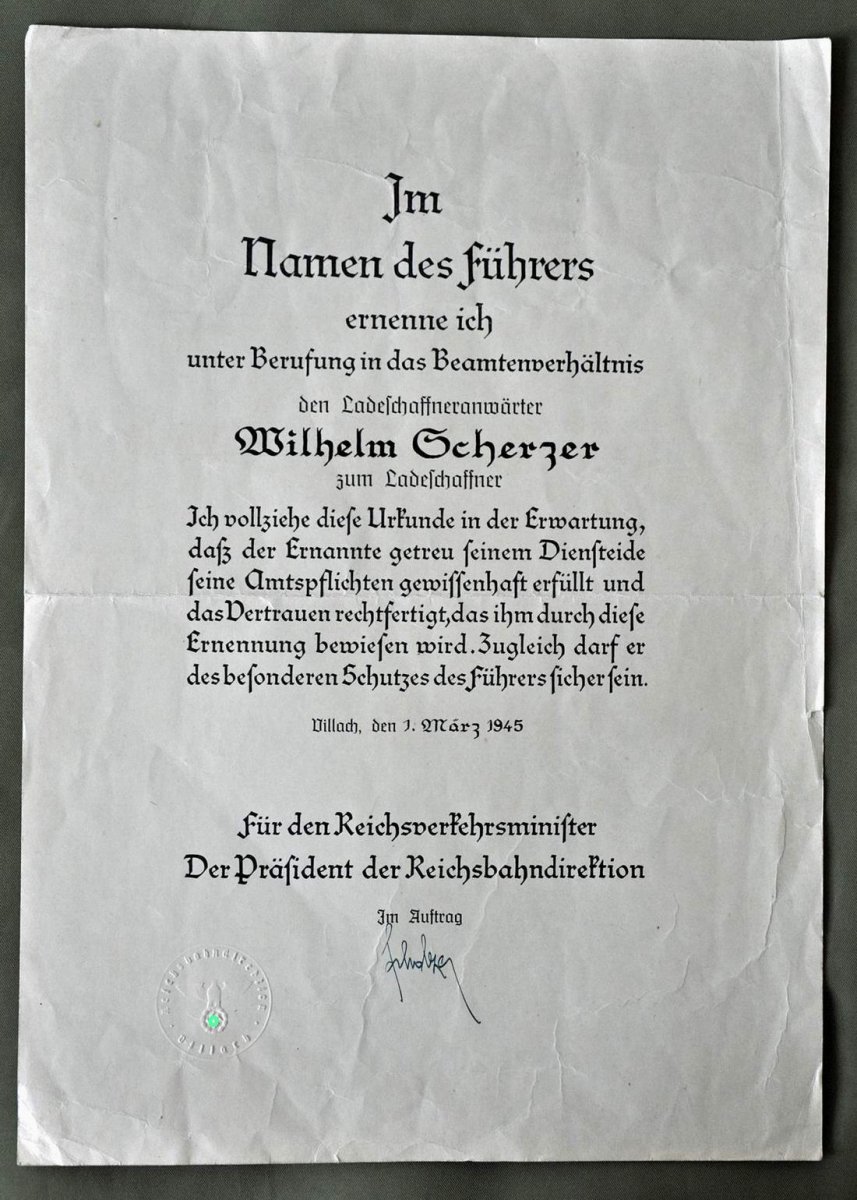 Im
Namen des Führers
ernenne ich
unter Berufung in das Beamtenverhältnis
den Ladeſchaffneranwärter
Wilhelm Scherzer
zum Ladeſchaffner
Ich vollziehe dieſe Urkunde in der Erwartung,
daß der Ernannte getreu ſeinem Dienſteide
ſeine Amtspflichten gewiſſenhaft erfüllt und
das Vertrauen rechtfertigt, das ihm durch dieſe
Ernennung bewieſen wird. Zugleich darf er
des beſonderen Schutzes des Führers ſicher ſein.
Villach, den 1. März 1945
Für den Reichsverkehrsminiſter
Der Präſident der Reichsbahndirektion
Im Auftrag
Reichsbahndirektion
Villach